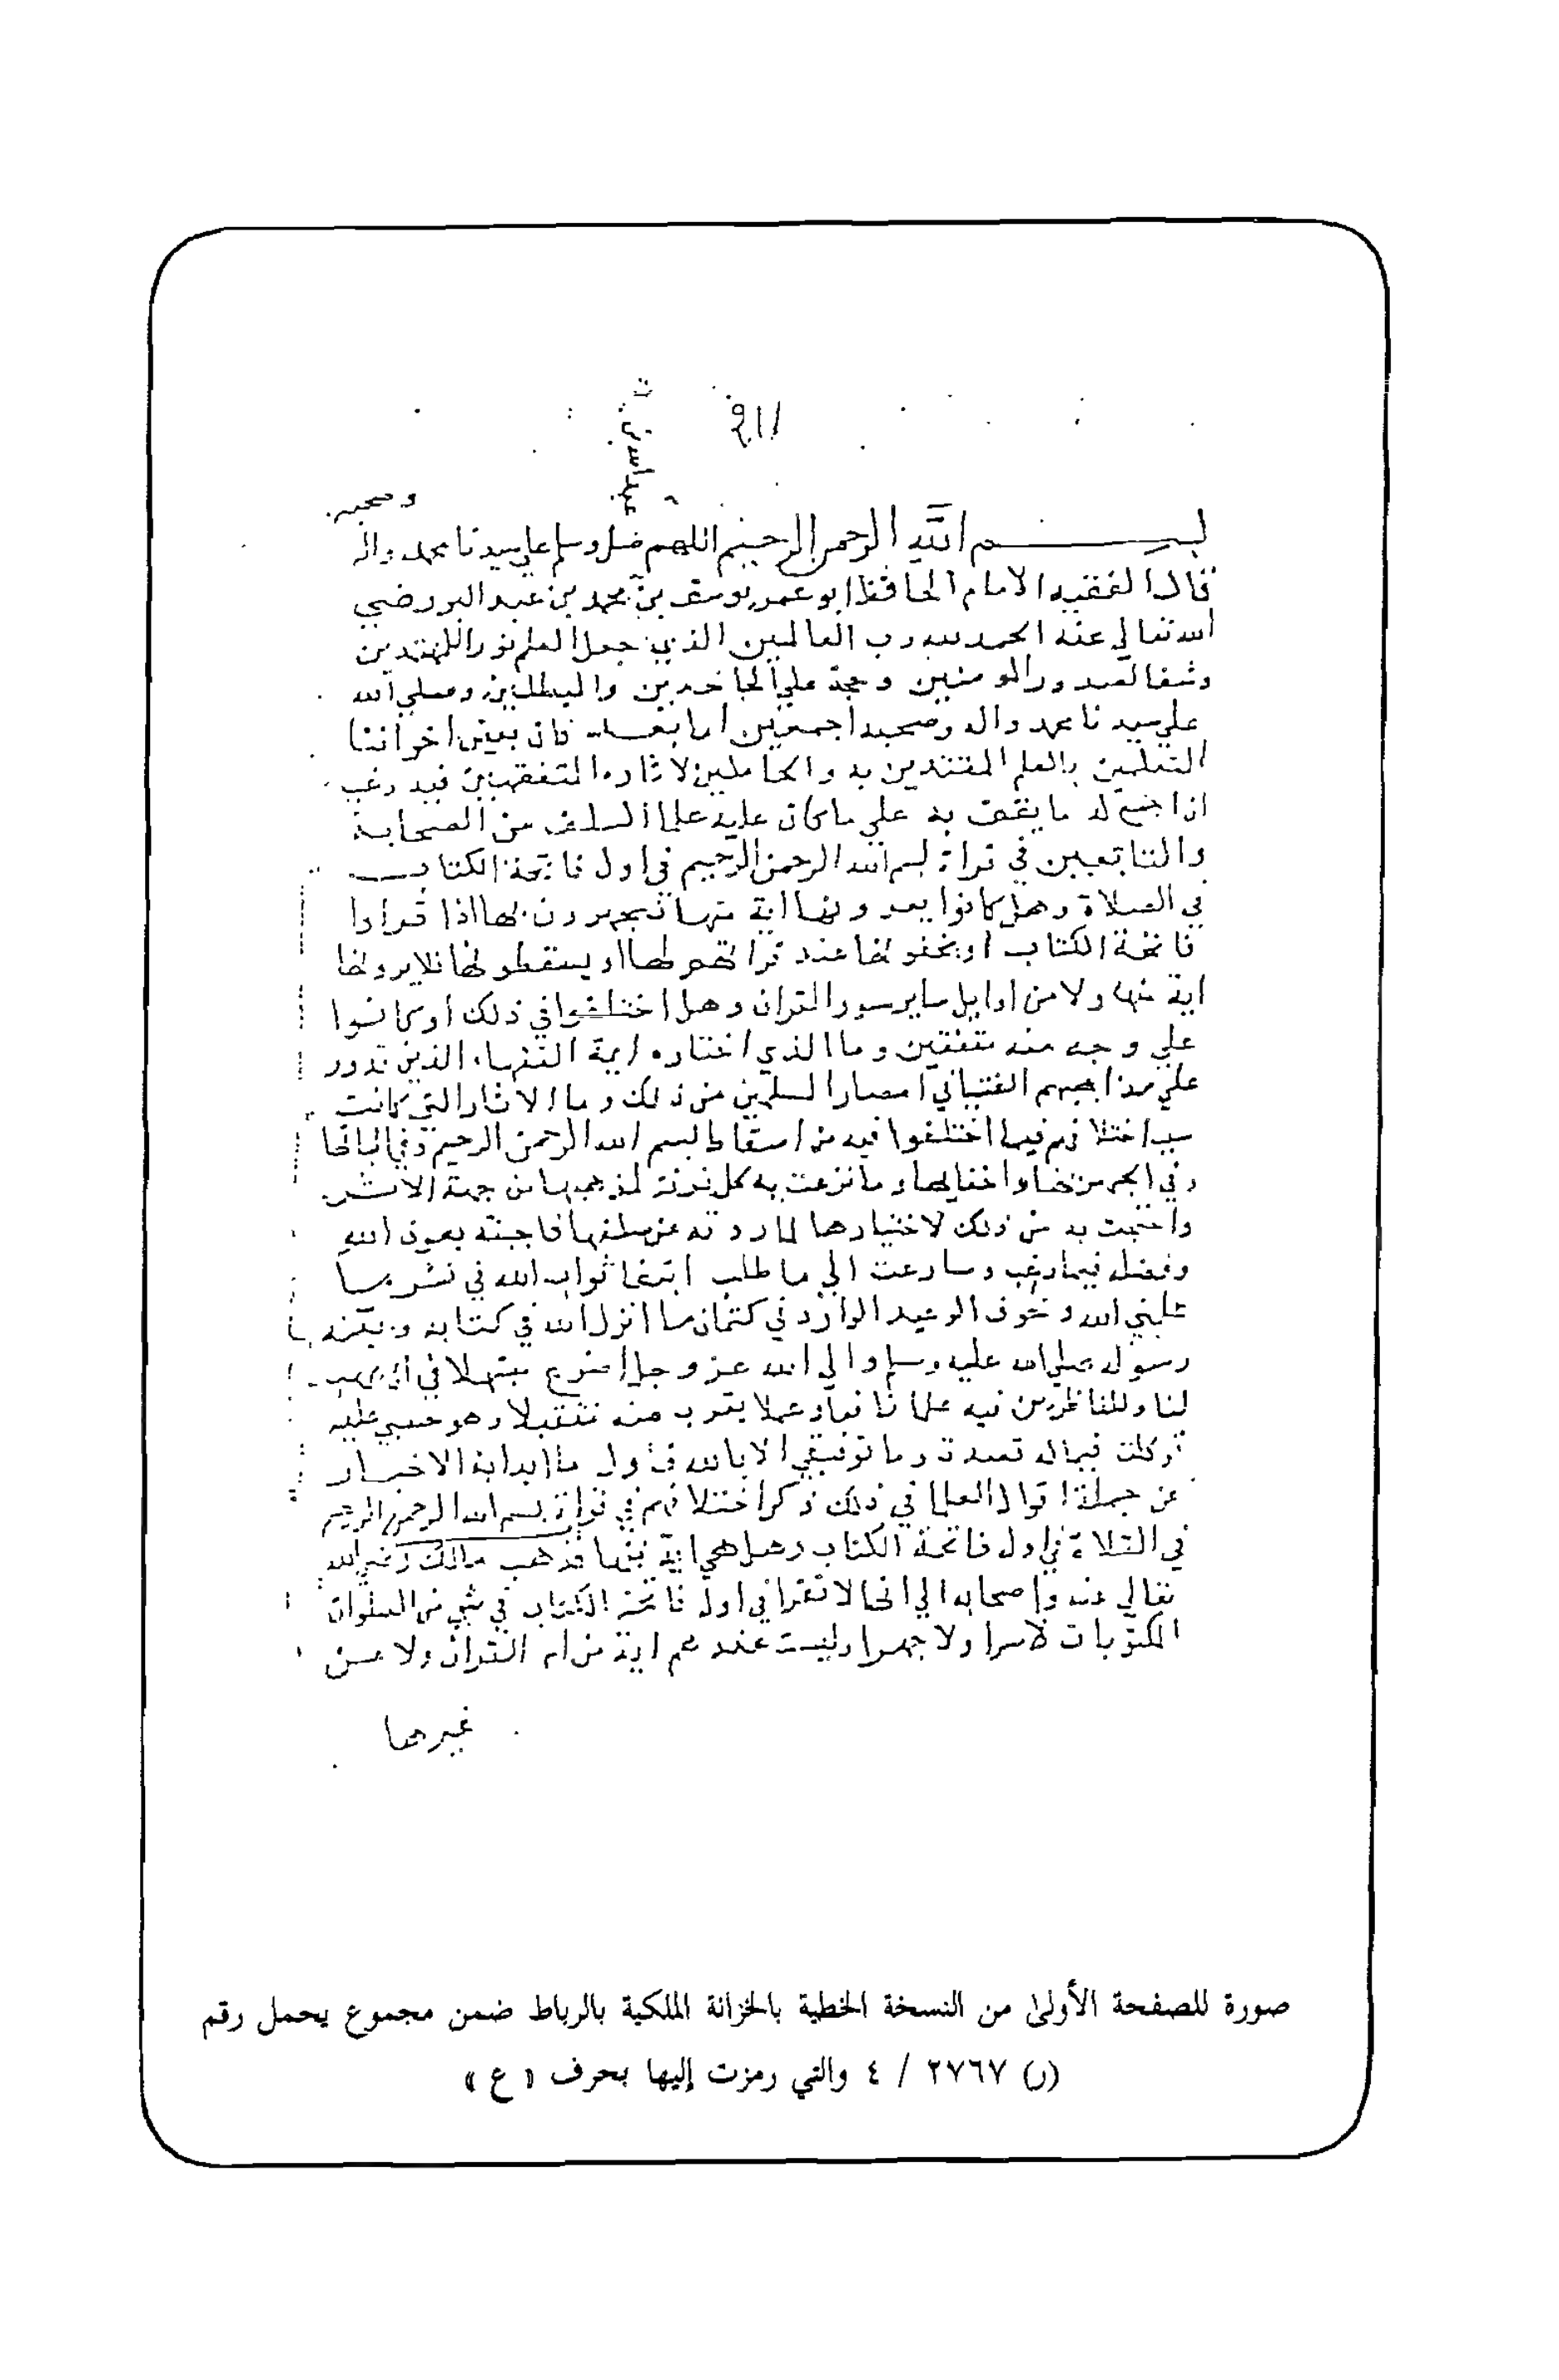 وصحبه
بسم الله الرحمن الرحيم اللهم صل وسلم على سيدنا محمد واله
قال الفقيه الامام الحافظ ابو عمر يوسف بن محمد بن عبد البر رضي
الله تعالي عنه الحمد لله رب العالمين الذي جعل العلم نورا للمهتدين
وشفا لصدور المومنين وحجة علي الجاحدين والمبطلين وصلي الله
علي سيدنا محمد واله وصحبه اجمعين اما بعد فان بعض اخواننا
بالعلم المقتدين به والحاملين لاثاره المتفقهين فيه رغب
ان اجمع له ما يقف به علي ما كان عليه علما السلف من الصحابة
والتابعين في قراة بسم الله الرحمن الرحيم في اول فاتحة الكتاب
في الصلاة وهل كانوا يعدونها اية منها فيجهرون بها اذا قراوا
فاتحة الكتاب او يخفونها عند قراتهم لها او يسقطونها فلا يرونها
اية منها ولا من اوايل ساير سور القران وهل اختلفوا في ذلك او كانوا
علي وجه منه متفقين وما الذي اختاره ايمة الفقهاء الذين تدور
علي مذاهبهم الفتيا في امصار المسلمين من ذلك وما الاثار التي كانت
سبب اختلافهم فيما اختلفوا فيه من اسقاط بسم الله الرحمن الرحيم وفي اثباتها
وفي الجهر بها واخفايها وما نزعت به كل فرقة لمذهبها من جهة الاثر
واحتجت به من ذلك لاختيارها لما روته عن سلفها فاجبته بعون الله
وفضله فيما رغب وسارعت الي ما طلب ابتغا ثواب الله في نشر ما
علمني الله وخوف الوعيد الوارد في كتمان ما انزل الله في كتابه
رسوله صلي الله عليه وسلم والي الله عز وجل اضرع مبتهلا في ان يهب
لنا وللناظرين فيه علما نافعا وعملا يقرب منه متقبلا وهو حسبي عليه
توكلت فيما له قصدت وما توفيقي الا بالله فاول ما ابدا به الاخبار
عن جملة اقوال العلما في ذلك ذكر اختلافهم في قراة بسم الله الرحمن الرحيم
في الصلاة في اول فاتحة الكتاب وهل هي اية منها فذهب مالك رضي الله
تعالي عنه واصحابه الي انها لا تقرا في اول فاتحة الكتاب في شي من الصلوات
المكتوبات لا سرا ولا جهرا وليست عندهم اية من ام القران ولا من
غيرها
صورة للصفحة الأولى من النسخة الخطية بالخزانة الملكية بالرباط ضمن مجموع يحمل رقم
(ر) ٢٧٦٧ / ٤ والتي رمزت إليها بحرف « ع »